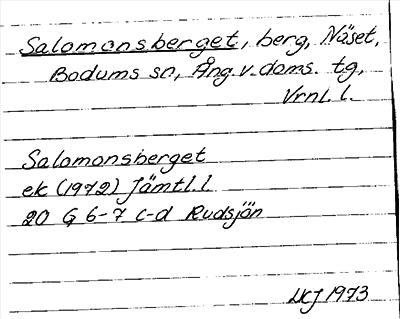 Salomonsberget, berg, Näset,
Bodums sn, Ång.v.doms. tg,
Vrnl. l.
Salomonsberget
ek (1972) Jämtl. l
20 G 6-7 c-d Rudsjön
1973